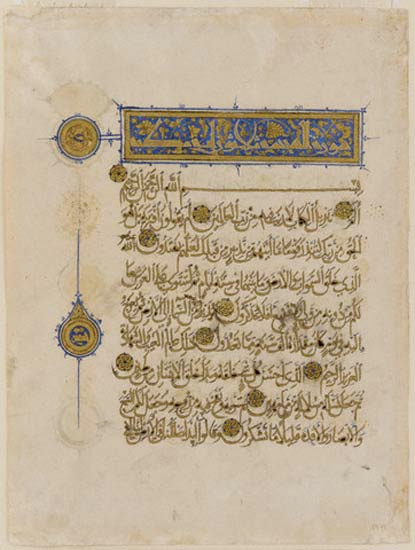 بسم الله الرحمن الرحيم
الم تنزيل الكتاب لا ريب فيه من رب العالمين ام يقولون افتراه بل هو
الحق من ربك لتنذر قوما ما اتاهم من نذير من قبلك لعلهم يهتدون الله
الذي خلق السموات والارض وما بينهما في ستة ايام ثم استوى على العرش ما
لكم من دونه من ولي ولا شفيع افلا تتذكرون يدبر الامر من السماء الى الارض ثم يعرج
اليه في يوم كان مقداره الف سنة مما تعدون ذلك عالم الغيب والشهادة
العزيز الرحيم الذي احسن كل شيء خلقه وبدا خلق الانسان من طين ثم
جعل نسله من سلالة من ماء مهين ثم سواه ونفخ فيه من روحه وجعل لكم السمع
والابصار والافئدة قليلا ما تشكرون وقالوا ائذا ضللنا في الارض